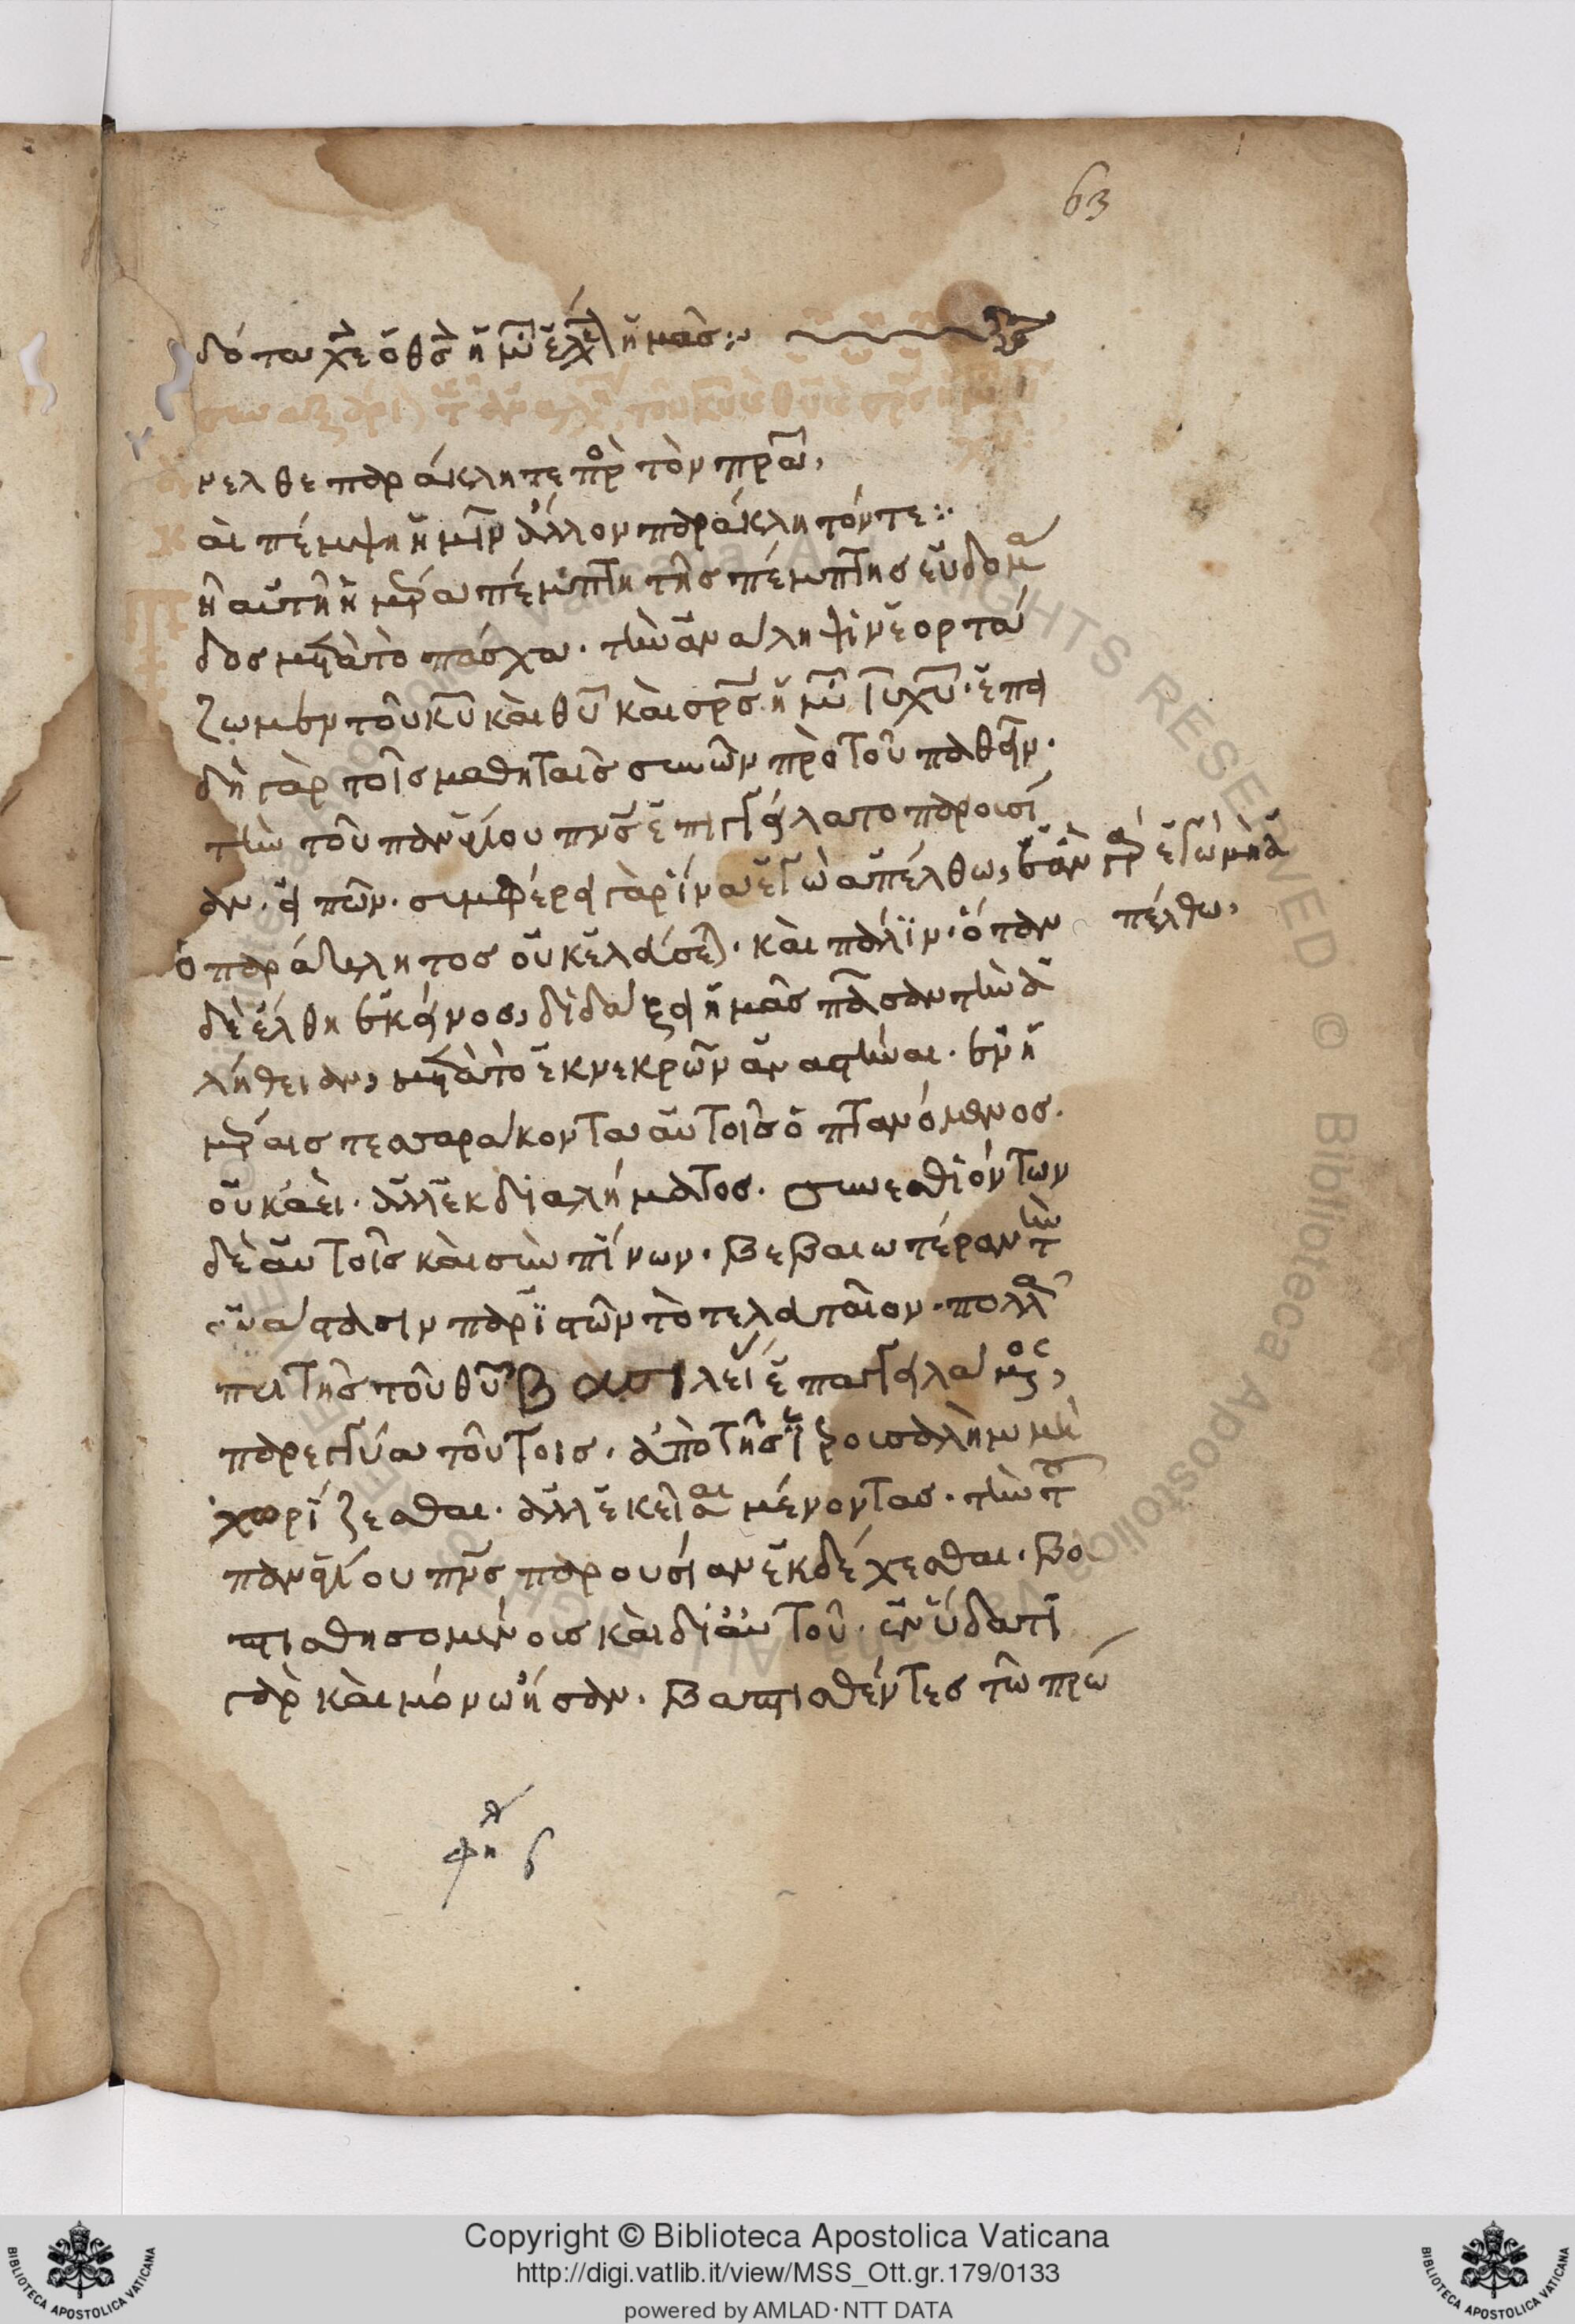 63
δότα χε ὁ θς ἡμῶν ἐλέησον ἡμᾶς:~
νελθε παράκλητε πρ τὸν πρα,
αὶ πέμψη ἡμῖν ἄλλον παράκλητόν τε:·
ῆ αὐτῆ ἡμέρα πέμπτη τῆς πέμπτης εὐδομά
δος μετὰ τὸ πάσχα. τὴν ἀνάληψιν ἑορτά
ζωμεν τοῦ κυ καὶ θυ καὶ σρς ἡμῶν ιυ χυ. ἐπει
δὴ γὰρ τοῖς μαθηταῖς συνὼν πρὸ τοῦ παθεῖν.
τὴν τοῦ παναγίου πνς ἐπηγγείλατο παρουσί
αν. εἰπών. συμφέρει γὰρ ἵνα ἐγὼ ἀπέλθω, ἐὰν γὰρ ἐγὼ μὴ ἀ
πέλθω,
ὁ παράκλητος οὐκ ἐλεύσεται. καὶ πάλιν. ὅταν
δὲ ἔλθη ἐκεῖνος, διδάξει ἡμᾶς πᾶσαν τὴν ἀ
λήθειαν, μετὰ τὸ ἐκ νεκρῶν ἀναστῆναι. ἐν ἡ
μέραις τεσσαράκοντα αὐτοῖς ὀπτανόμενος.
οὐκ ἀεὶ. ἀλλ' ἐκ διαλήματος. συνεσθιόντων
δὲ αὐτοῖς καὶ σὺν πίνων. βεβαιωτέραν τὴν
ἀνάστασιν παριστῶν τὸ τελευταῖον. πολλὰ
περὶ τῆς τοῦ θυ βασιλείας ἐπαγγειλάμενος,
παρεγγύα τούτοις. ἀπὸ τῆς ἱερουσαλὴμ μὴ
χωρίζεσθαι. ἀλλ' ἐκεῖσαι μένοντας. τὴν τοῦ
παναγίου πνς παρουσίαν ἐκδέχεσθαι. βα
πτισθησομένοις καὶ δι' αὐτοῦ. ἐν ὕδατι
γὰρ καὶ μόνω ἦσαν. βαπτισθέντες τῶ πρώ
Copyright © Biblioteca Apostolica Vaticana
http://digi.vatlib.it/view/MSS_Ott.gr.179/0133
powered by AMLAD·NTT DATA
BIBLIOTECA APOSTOLICA VATICANA
BIBLIOTECA APOSTOLICA VATICANA